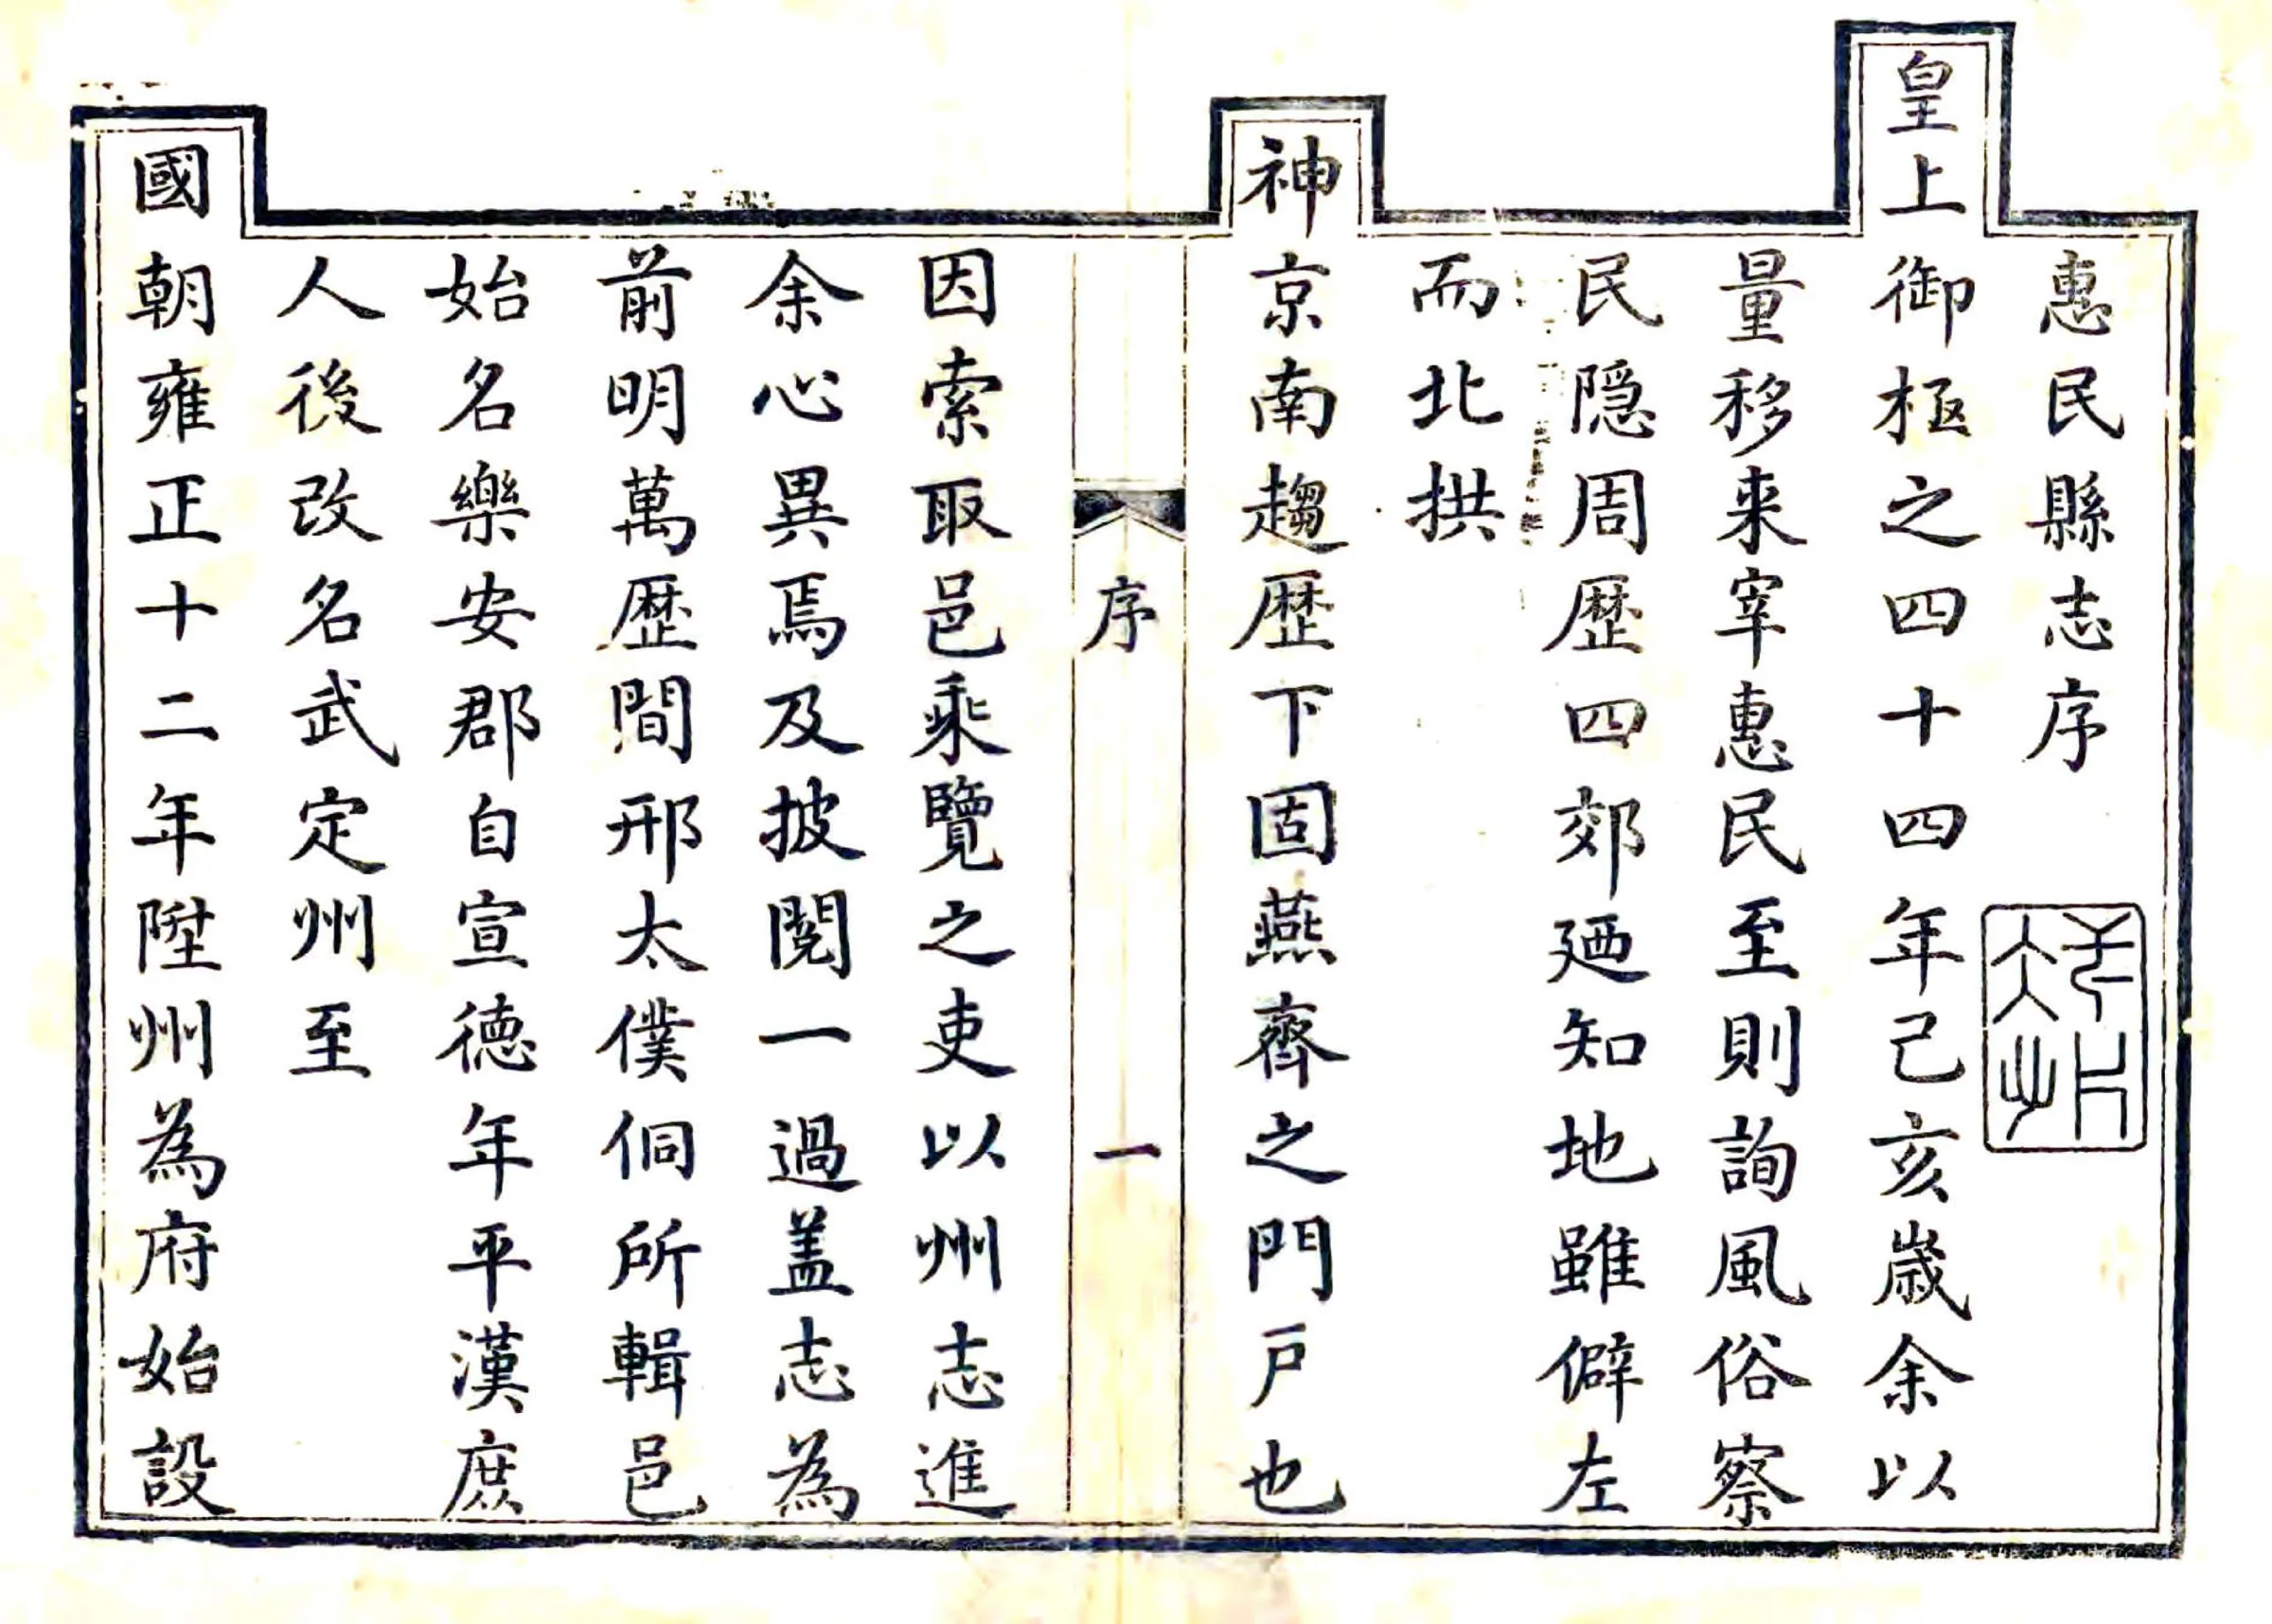 惠民縣志序
皇上御極之四十四年己亥歲余以
量移来宰惠民至則詢風俗察
民隐周歷四郊廼知地雖僻左
而北拱
神京南趨歷下固燕齊之門戸也
序
一
因索取邑乘覽之吏以州志進
余心異焉及披閱一過盖志為
前明萬歷間邢太僕侗所輯邑
始名樂安郡自宣德年平漢庶
人後改名武定州至
國朝雍正十二年陞州為府始設